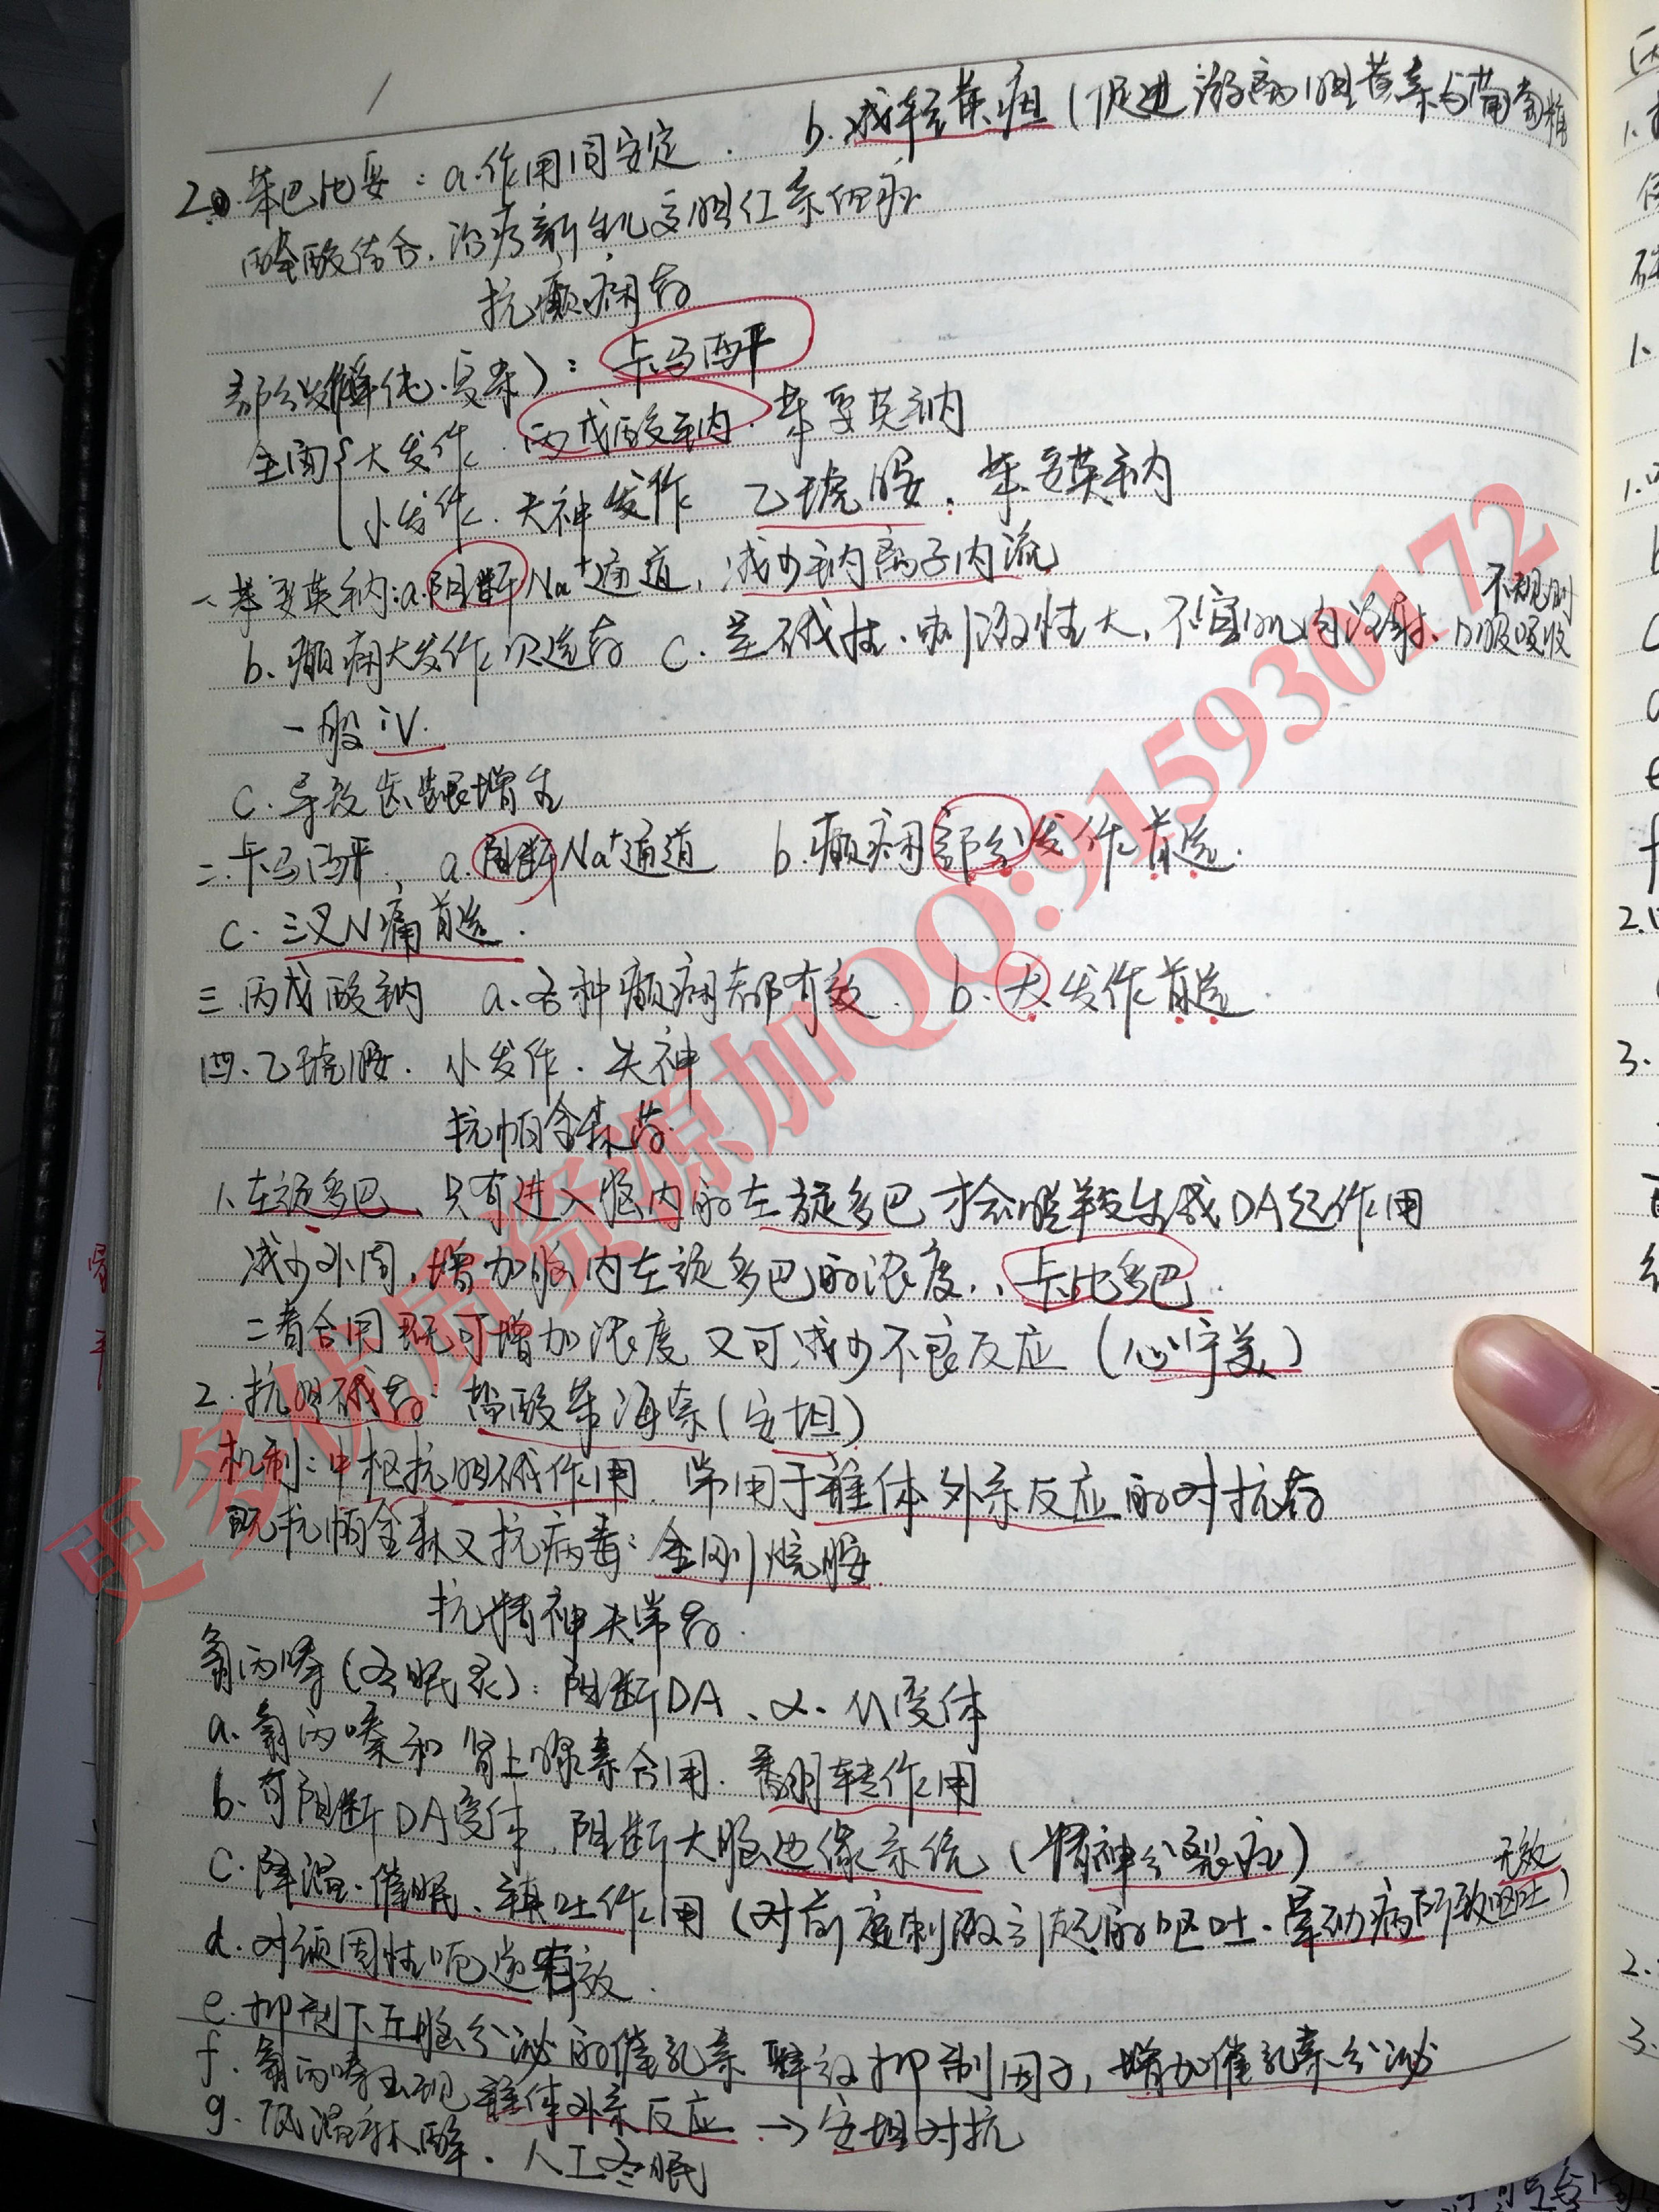 2. 苯巴比妥：a.作用同安定． b.减轻黄疸（促进游离胆黄素与葡萄糖
醛酸结合．治疗新生儿高胆红素血症
抗癫痫药
部分发作(单纯.复杂)：卡马西平
全面{大发作．丙戊酸钠．苯妥英钠
小发作．失神发作 乙琥胺．苯妥英钠
一.苯妥英钠：a.阻断Na⁺通道，减少钠离子内流
b.癫痫大发作次选药 c.呈碱性．刺激性大，不宜im肉注射、口服吸收不规则
一般iV.
C.导致齿龈增生
二.卡马西平． a.阻断Na⁺通道 b.癫痫部分发作首选．
C.三叉N痛首选．
三.丙戊酸钠 a.各种癫痫都有效． b.大发作首选．
四.乙琥胺．小发作．失神
抗帕金森药
1.左旋多巴、只有进入脑内的左旋多巴才会脱羧生成DA起作用
减少外周，增加脑内左旋多巴的浓度，卡比多巴．
二者合用既可增加浓度又可减少不良反应（心宁美）
2.抗胆碱药：盐酸苯海索（安坦）
机制：中枢抗胆碱作用．常用于锥体外系反应的对抗药
既抗帕金森又抗病毒：金刚烷胺
抗精神失常药．
氯丙嗪(冬眠灵)：阻断DA、α、M受体
a.氯丙嗪和肾上腺素合用．翻转作用
b.可阻断DA受体，阻断大脑边缘系统（精神分裂症）
C.降温．催眠、镇吐作用（对前庭刺激引起的呕吐．晕动病所致呕吐）无效
d.对顽固性呃逆有效．
e.抑制下丘脑分泌的催乳素释放抑制因子，增加催乳素分泌
f.氯丙嗪出现锥体外系反应→安坦对抗
g.低温麻醉．人工冬眠
更多优质资源加QQ:915930172